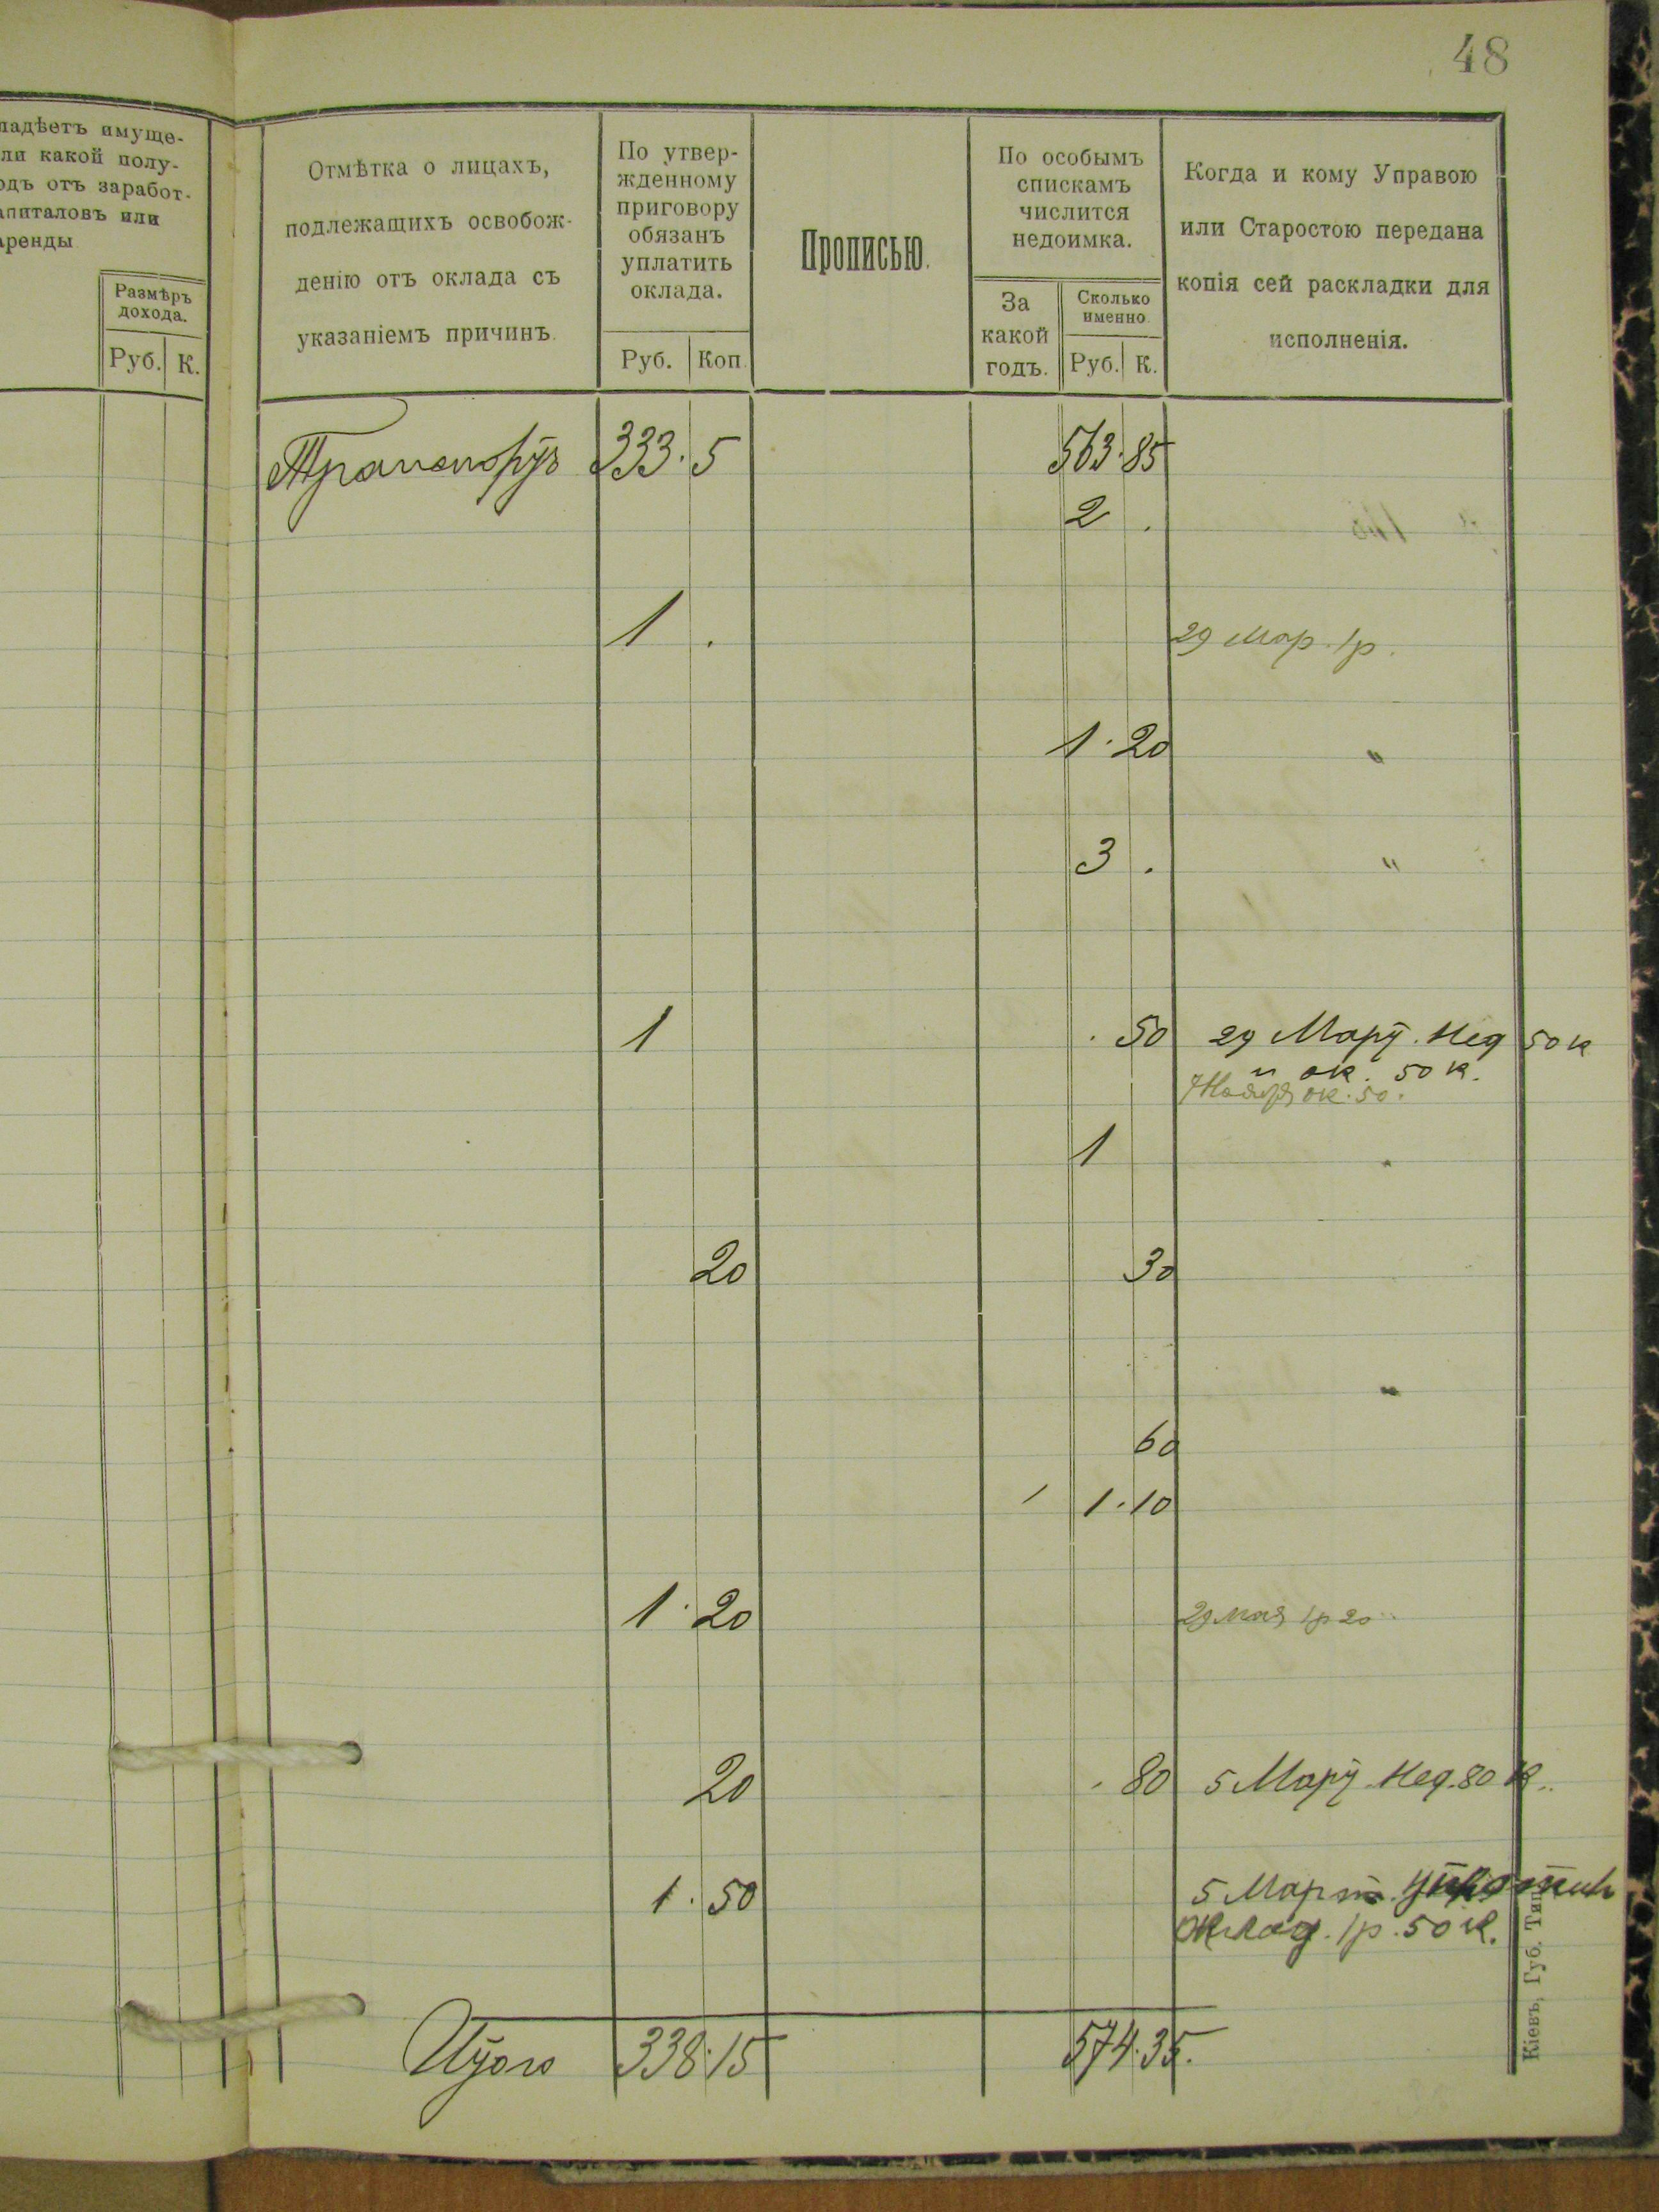 48
ладѣетъ имуще-
ли какой полу-
одъ отъ заработ-
апиталовъ или
аренды
Размѣръ
дохода.
Руб. К.
Отмѣтка о лицахъ,
подлежащихъ освобож-
денію отъ оклада съ
указаніемъ причинъ.
По утвер-
жденному
приговору
обязанъ
уплатить
оклада.
Руб. Коп.
Прописью.
По особымъ
спискамъ
числится
недоимка.
За
какой
годъ.
Сколько
именно.
Руб. К.
Когда и кому Управою
или Старостою передана
копія сей раскладки для
исполненія.
Транспортъ 333. 5 563. 85
2 .
1 . 29 Мар. 1р.
1. 20 "
3 . "
1 . 50 29 Март. Нед 50 к
" ок. 50 к.
ок. 50.
1 "
20 30
"
60
1. 10
1. 20 29 мая 1р 20
20 . 80 5 Март. Нед. 80 к.
1. 50 5 Март.
оклад. 1р. 50 к.
Итого 338. 15 574. 35.
Кіевъ, Губ. Тип.